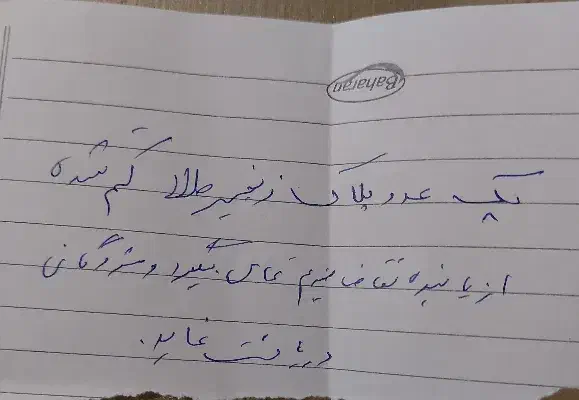 Baharan
یک عدد پلاک زنجیر طلا گم شده
از یابنده تقاضا میشود تماس بگیرد و مژدگانی
دریافت نماید.